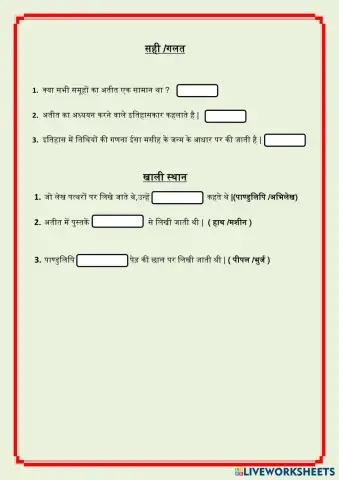 सही /गलत
1. क्या सभी समूहों का अतीत एक सामान था ?
2. अतीत का अध्ययन करने वाले इतिहासकार कहलाते है |
3. इतिहास में तिथियों की गणना ईसा मसीह के जन्म के आधार पर की जाती है |
खाली स्थान
1. जो लेख पत्थरों पर लिखे जाते थे,उन्हें कहते थे |(पाण्डुलिपि /अभिलेख)
2. अतीत में पुस्तकें से लिखी जाती थी | ( हाथ /मशीन )
3. पाण्डुलिपि पेड़ की छाल पर लिखी जाती थी | ( पीपल /भुर्ज )
LIVEWORKSHEETS